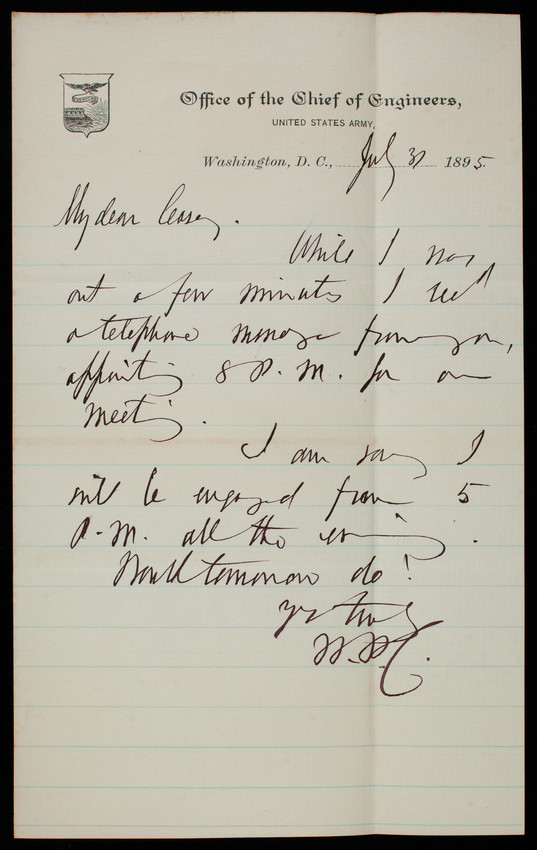 Office of the Chief of Engineers,
UNITED STATES ARMY,
Washington, D. C., July 31 1895.
My dear Casey.
While I was
out a few minutes I recd
a telephone message from you,
appointing 8 P. M. for our
meeting.
I am sorry I
will be engaged from 5
P. M. all the evening.
Would tomorrow do?
yrs truly
W.P.C.